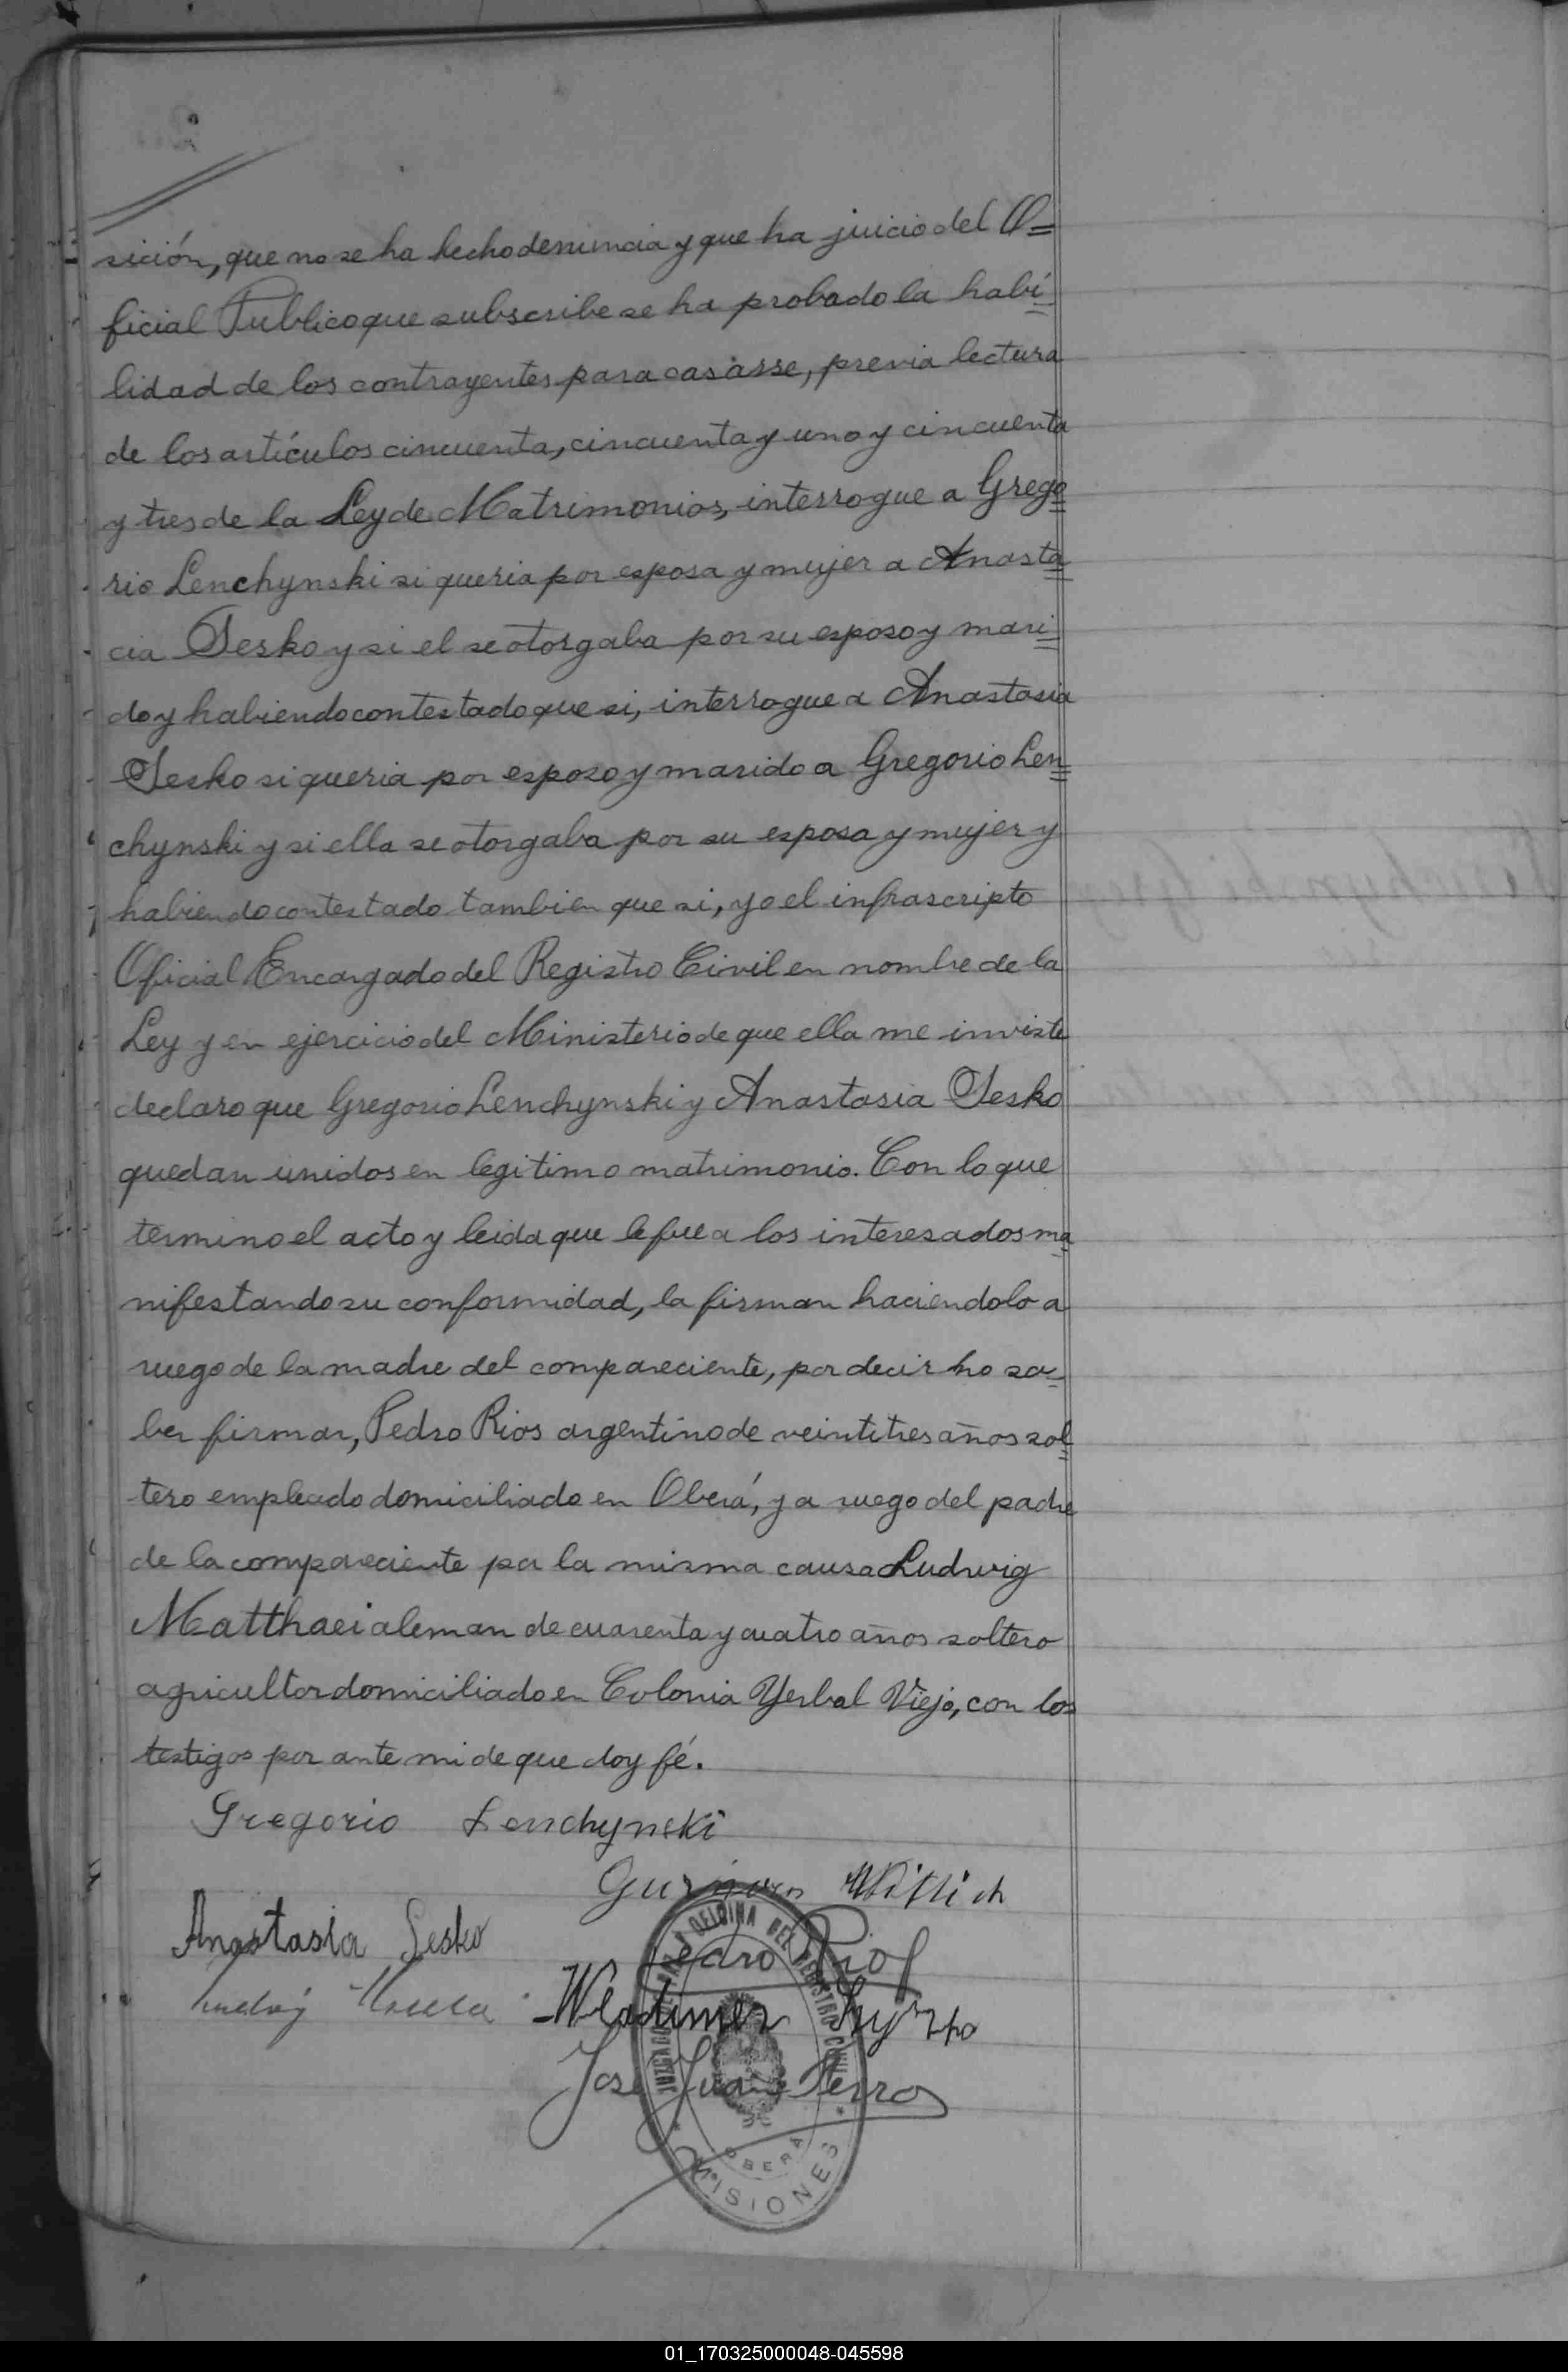 sición, que no se ha hecho denuncia y que ha juicio del O=
ficial Publico que subscribe se ha probado la habi=
lidad de los contrayentes para casarse, previa lectura
de los artículos cincuenta, cincuenta y uno y cincuenta
y tres de la Ley de Matrimonios, interrogue a Grego=
rio Lenchynski si queria por esposa y mujer a Anasta=
cia Sesko y si el se otorgaba por su esposo y mari=
do y habiendo contestado que si, interrogue a Anastasia
Sesko si queria por esposo y marido a Gregorio Len=
chynski y si ella se otorgaba por su esposa y mujer y
habiendo contestado tambien que si, yo el infrascripto
Oficial Encargado del Registro Civil en nombre de la
Ley y en ejercicio del Ministerio de que ella me inviste
declaro que Gregorio Lenchynski y Anastasia Sesko
quedan unidos en legitimo matrimonio. Con lo que
termino el acto y leida que le fue a los interesados ma=
nifestando su conformidad, la firman haciendolo a
ruego de la madre del compareciente, por decir no sa=
ber firmar, Pedro Rios argentino de veintitres años sol=
tero empleado domiciliado en Oberá, y a ruego del padre
de la compareciente por la misma causa Ludwig
Matthaei aleman de cuarenta y cuatro años soltero
agricultor domiciliado en Colonia Yerbal Viejo, con los
testigos por ante mi de que doy fé.
Gregorio Lenchynski
Wittich
Anastasia Sesko
Pedro Rios
Wladimer
José Juan Ferro
OFICINA DEL REGISTRO CIVIL
OBERÁ
MISIONES
01_170325000048-045598